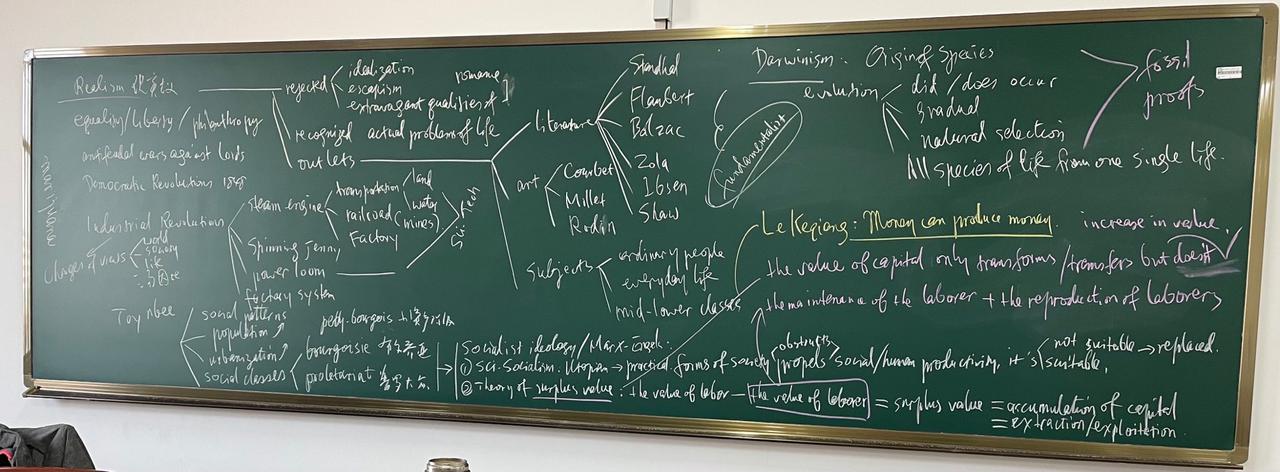 Realism 现实主义
equality/liberty/philanthropy
antifeudal wars against lords
Democratic Revolutions 1848
Industrial Revolutions
Changes of views
world
society
life
Toynbee
social patterns
population ↑
urbanization ↑
social classes
bourgeoisie
proletariat
petty-bourgeois
steam engine
transportation
land
water
railroad (mines)
Factory
spinning Jenny
power loom
factory system
Sci-Tech
rejected
idealization
escapism
extravagant qualities of
romance
recognized actual problems of life
outlets
literature
Stendhal
Flaubert
Balzac
Zola
Ibsen
Shaw
art
Courbet
Millet
Rodin
subjects
ordinary people
everyday life
mid-lower classes
Socialist ideology/Marx-Engels:
① Sci-Socialism. Utopian → practical forms of society
obstructs
propels
social/human productivity, it's
not suitable → replaced.
suitable,
② Theory of surplus value: the value of labor — the value of laborer = surplus value = accumulation of capital
= extraction/exploitation
Darwinism: Origin of Species
evolution
did/does occur
gradual
natural selection
All species of life from one single life.
fossil
proofs
fundamentalist
Le Keqiang: Money can produce money
increase in value.
the value of capital only transforms/transfers but doesn't
the maintenance of the laborer + the reproduction of laborers